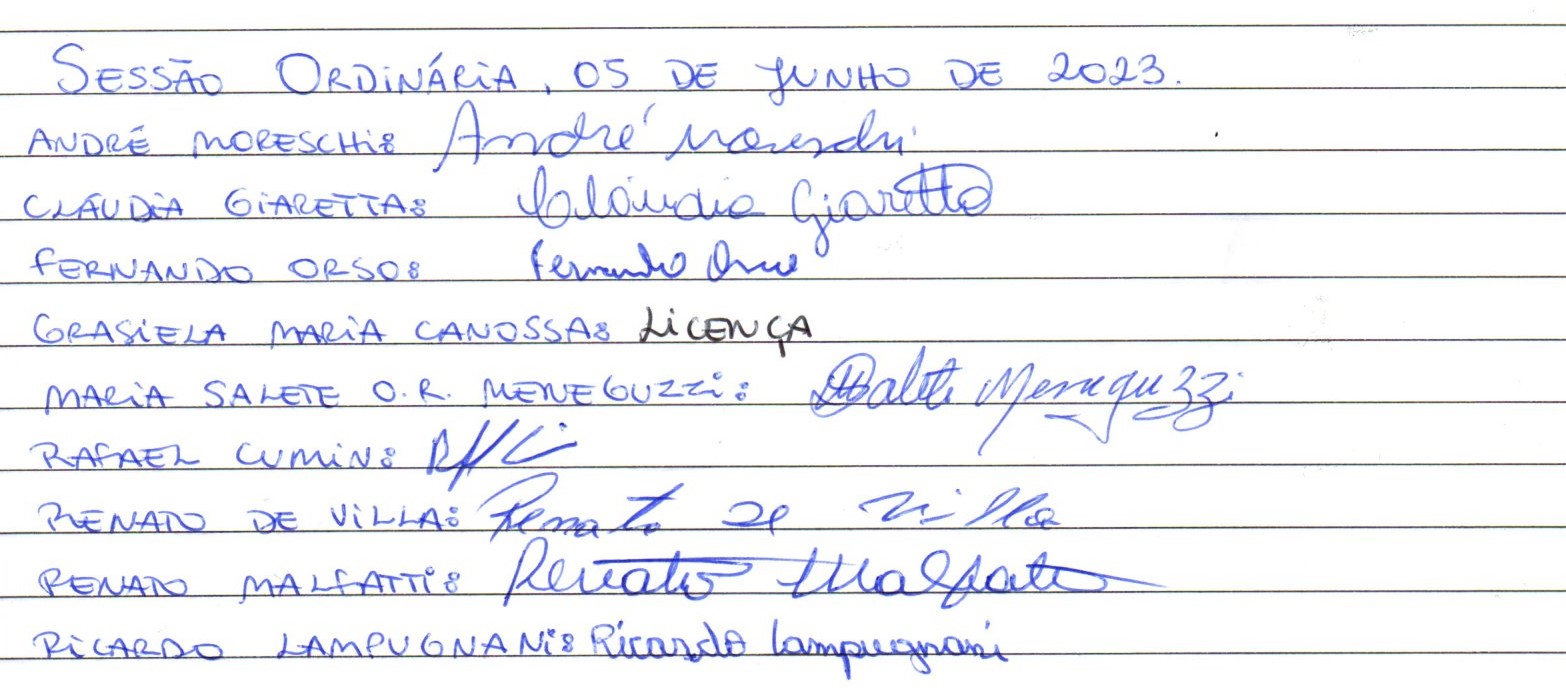 SESSÃO ORDINÁRIA, 05 DE JUNHO DE 2023.
ANDRÉ MORESCHI: André Moreschi
CLÁUDIA GIARETTA: Cláudia Giaretta
FERNANDO ORSO: Fernando Orso
GRASIELA MARIA CANOSSA: LICENÇA
MARIA SALETE O.R. MENEGUZZI: MSalete Meneguzzi
RAFAEL CUMIN:
RENATO DE VILLA: Renato De Villa
RENATO MALFATTI: Renato Malfatti
RICARDO LAMPUGNANI: Ricardo Lampugnani